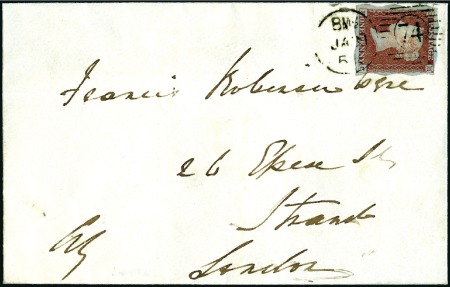 74
POSTAGE
Francis Robinson Esqre
26 Essex St
Strand
London